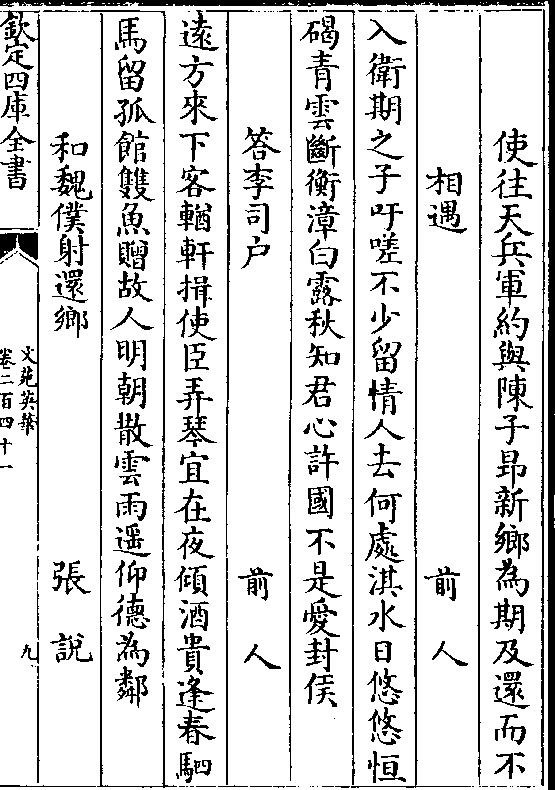 使往天兵軍約與陳子昻新鄉為期及還而不
相遇 前人
入衛期之子吁嗟不少留情人去何處淇水日悠悠恒
碣青雲斷衡漳白露秋知君心許國不是愛封侯
答李司户 前人
遠方來下客輶軒揖使臣弄琴宜在夜傾酒貴逢春駟
馬留孤館雙魚贈故人明朝散雲雨遥仰德為鄰
和魏僕射還鄉 張說
欽定四庫全書
文苑英華
卷二百四十一
九